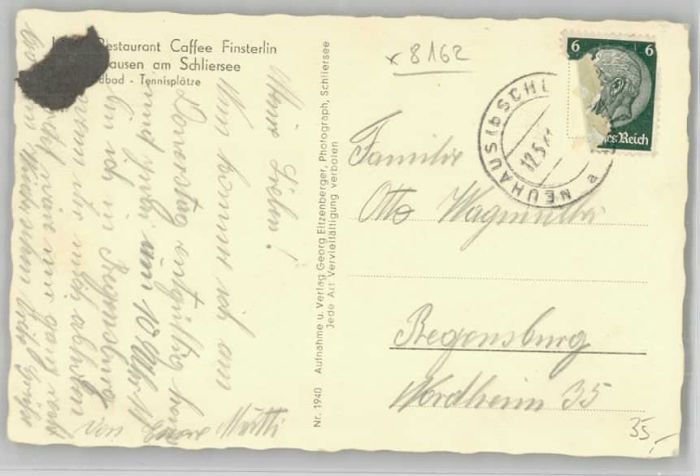 Restaurant Caffee Finsterlin
hausen am Schliersee
dbad - Tennisplätze
x 8162
6 6
es Reich
NEUHAUS (b SCHL
12.5.
a
Familie
Otto Wagmüller
Regensburg
Nordheim 35
35,-
Nr. 1940 Aufnahme u. Verlag Georg Eitzenberger, Photograph, Schliersee
Jede Art Vervielfältigung verboten
Meine Lieben!
Nun komme ich am
Donnerstag entgültig
und zwar um 10 Uhr
bin ich in Regensburg
wenn ihr mich abholen
wäre mir ganz recht
von Eurer Mutti